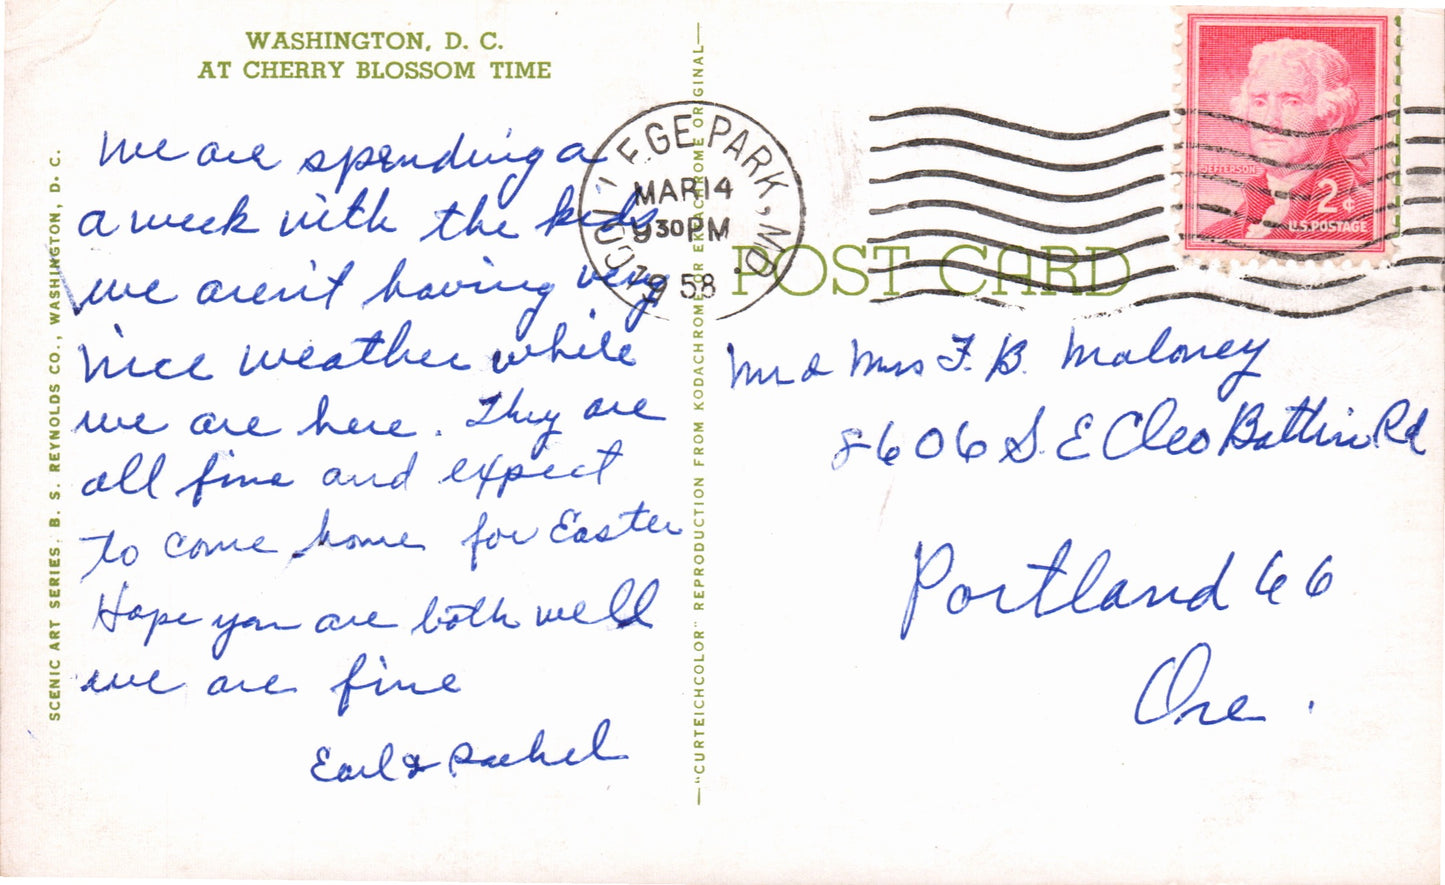 WASHINGTON, D. C.
AT CHERRY BLOSSOM TIME
We are spending a
a week with the kids
we aren't having very
nice weather while
we are here. They are
all fine and expect
to come home for Easter
Hope you are both well
we are fine
Earl & Rachel
SCENIC ART SERIES. B. S. REYNOLDS CO., WASHINGTON, D. C.
"CURTEICHCOLOR" REPRODUCTION FROM KODACHROME OR EKTACHROME ORIGINAL
COLLEGE PARK, MD.
MAR 14
930 PM
1958
POST CARD
JEFFERSON
2¢
U.S. POSTAGE
Mr & Mrs F. B. Maloney
8606 S. E Cleo Battin Rd
Portland 66
Ore.